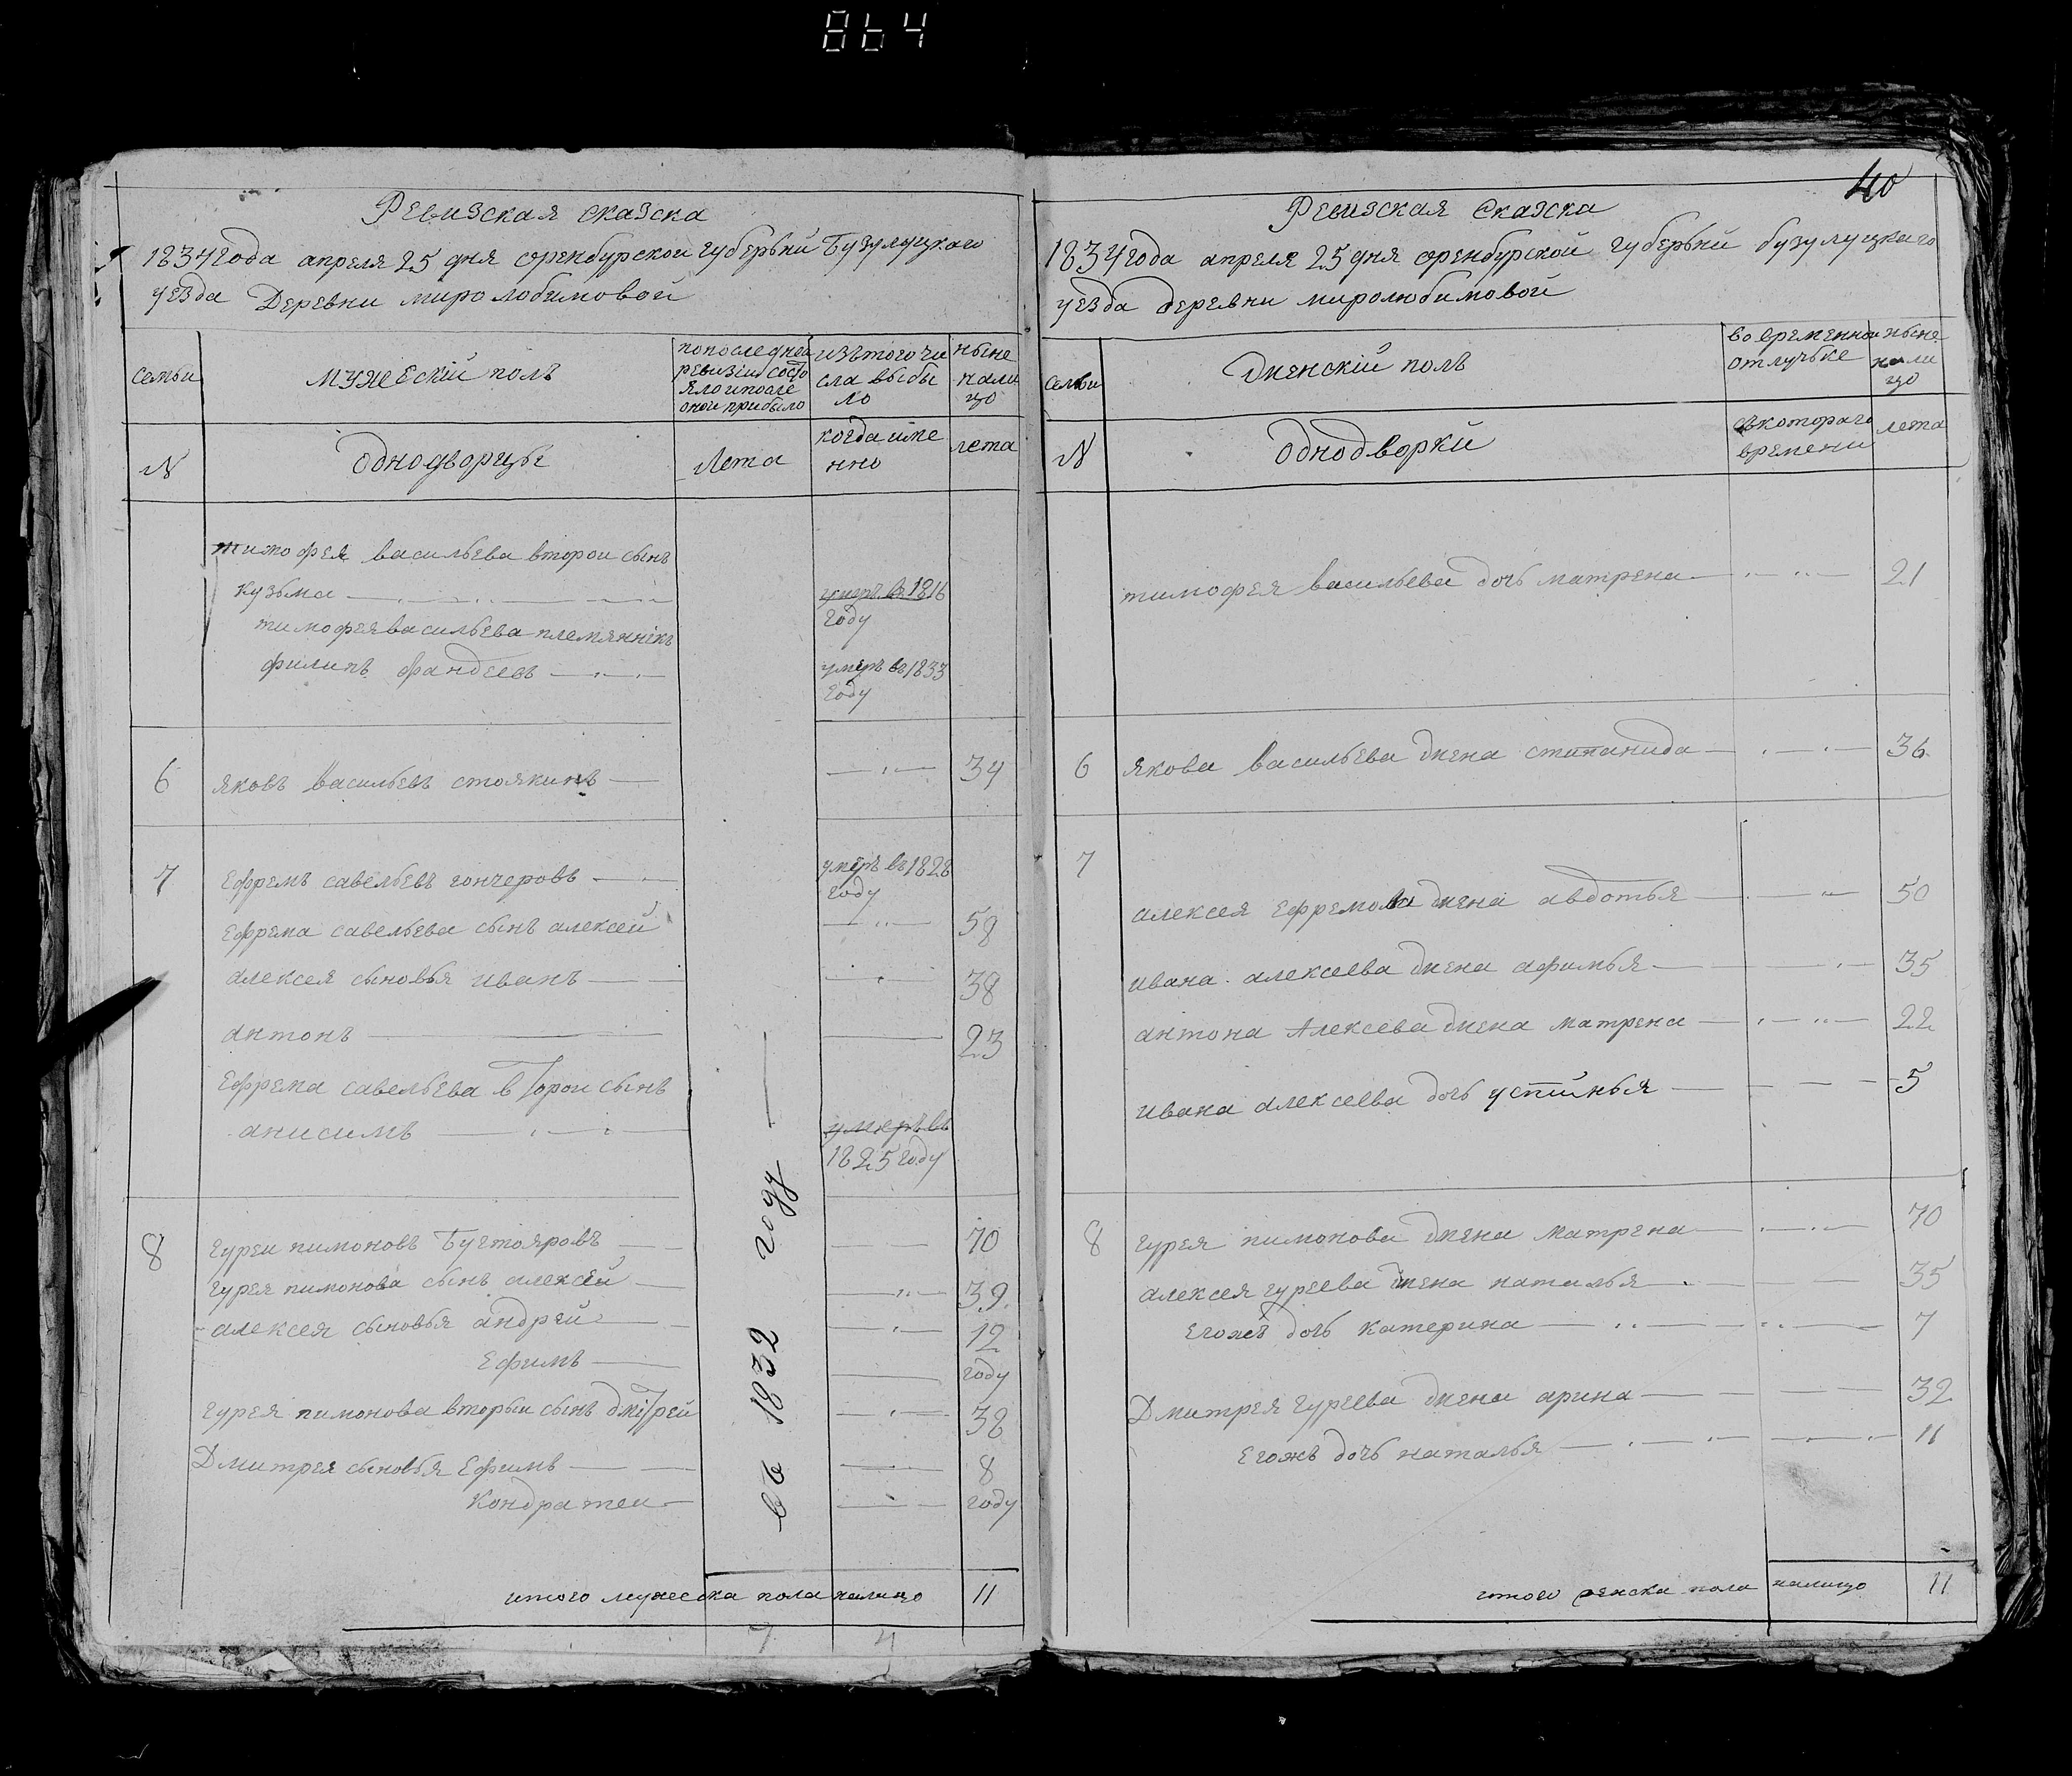 864
Ревизская сказска
1834 года апреля 25 дня оренбурской губерьнй Бузулуцкаго
уезда Деревни миролобимовой
семьи
мужескій полъ
по последней
ревизіи состо
яло и после
оной прибыло
изътого чи
сла выбы
ло
ныне
нали
цо
N
однодворцы
Лета
когда име
нно
лета
тимофея васильева второи сынъ
кузьма
умеръ въ 1816
году
тимофея васильева племянникъ
филипъ фандеевъ
умеръ въ 1833
году
6 яковъ васильевъ стоякинъ 34
7 Ефремъ савельевъ гончеровъ
умеръ въ 1828
году
Ефрема савельева сынъ алексей 58
алексея сыновья иванъ 38
антонъ 23
Ефрема савельева второи сынъ
анисимъ
умеръ въ
1825 году
8 гуреи пимоновъ 70
гурея пимонова сынъ алексей 39
алексея сыновья андрей 12
Ефимъ году
гурея пимонова вторыи сынъ дмітрей 38
Дмитрея сыновья Ефимъ 8
Кондратеи году
въ 1832 году
итого мужеска пола налицо 11
7 4
40
Ревизская Сказска
1834 года апреля 25 дня оренбурской губерьнй бузулуцкаго
уезда деревни миролюбимовой
семьи
женскій полъ
во временнои
отлучьке
ныне
нали
цо
N
однодворкй
съкотораго
времени
лета
тимофея васильева дочь матрена 21
6 якова васильева жена стипанида 36
7
алексея Ефремова жена авдотья 50
ивана алексеева жена афимья 35
антона Алексева жена матрена 22
ивана алексеева дочь устинья 5
8 гурея пимонова жена матрена 70
алексея гуреева жена наталья 35
Егожъ дочь катерина 7
Дмитрея гуреева жена арина 32
Егожъ дочь наталья 11
итого женска пола налицо 11